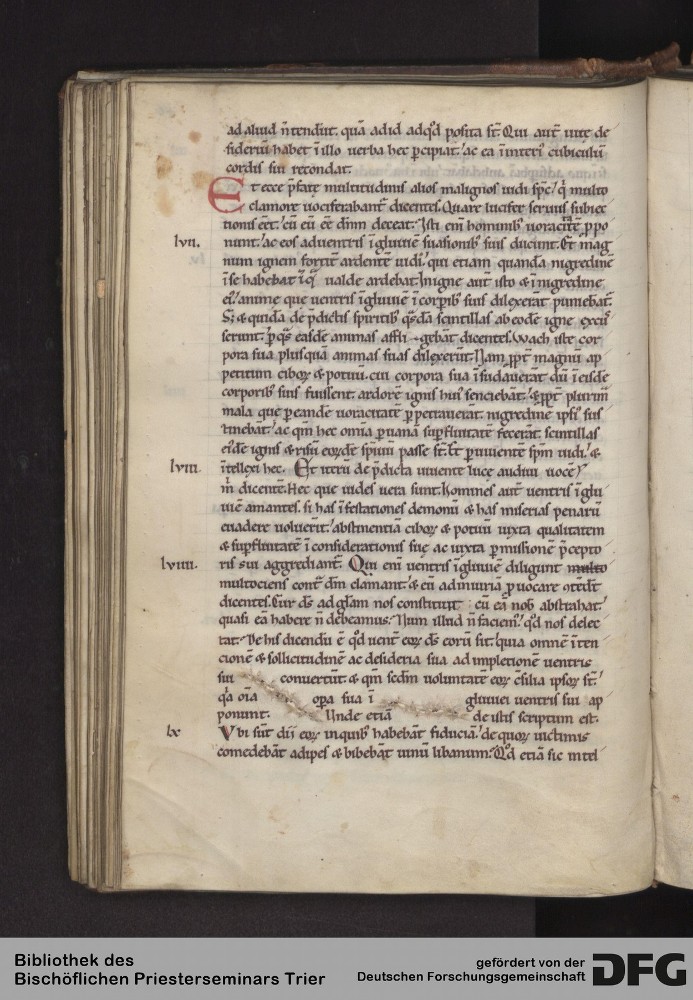 ad aliud n̄ tendūt. quā ad id ad qd̓ posita st̄. Qui aut̄ uite de
sideriū habet ī illo uerba hec p̱cipiat. ac ea ī interi᷒ cubiculū
cordis sui recondat.
Et ecce p̄fate multitudinis alios malignos uidi sp̄c᷒ q̓ multo
clamore uociferabant᷑ dicentes. Quare lucifer seruus subiec
tionis eēt. cū eū eē dn̄m deceat. Isti em̄ hominib᷒ uoracitatē p̱po
lvii. nunt. ac eos ad uentris īgluuiē suasionib᷒ suis ducunt. Et mag
num ignem fortit̄ ardentē uidi. qui etiam quandā nigredinē
ī se habebat ī q̓ ualde ardebat. In igne aut̄ isto & ī nigredine
ei᷒ anime que uentris īgluuiē ī corp̱ib᷒ suis dilexerāt puniebāt᷑.
S; & quidā de p̄dictis spiritib᷒ qs̓dā scintillas ab eodē igne excus
serunt. p̱ qs̓ easdē animas affligebāt dicentes. Wach iste cor
pora sua plusquā animas suas dilexerūt. Nam pp̱t̄ magnū ap
petitum ciboꝝ & potuū. cui corpora sua īsudauerāt dū ī eisdē
corporib᷒ suis fuissent. ardorē ignis hui᷒ senciebāt. & pp̱t̄ plurim̄
mala que p̱ eandē uoracitatē p̱petrauerāt. nigredinē ipsi᷒ sus
tinebāt. ac qm̄ hec omīa p̱ uanā sup̱fluitatē fecerāt. scintillas
ei᷒dē ignis & risū eoꝝdē sp̄uum passe st̄. Et p̱ uiuentē sp̄m uidi. &
lviii. ītellexi hec. Et iterū de p̄dicta uiuente luce audiui uocē
m̄ dicentē. Hec que uides uera sunt. Homines aut̄ uentris īglu
uiē amantes. si has īfestationes demonū & has miserias penarū
euadere uoluerīt. abstinentiā ciboꝝ & potuū iuxta qualitatem
& sup̱fluitatē ī considerationis suę ac iuxta p̱missionē p̄cepto
lviiii. ris sui aggrediant᷑. Qui em̄ uentris īgluuiē diligunt multo
multociens contᷓ dm̄ clamant. & eū ad iniuriā p̱uocare ꝯtēdūt
dicentes. Cur ds̄ ad gl̄am nos constituit cū eā nob̄ abstrahat.
quasi eā habere n̄ debeamus. Num illud n̄ faciem᷒. qd̓ nos delec
tat. De his dicendū ē qd̓ uent̄ eoꝝ ds̄ eorū sit. quia omnē īten
cionē & sollicitudinē ac desideria sua ad impletionē uentris
sui conuertūt. & qm̄ scdm̄ uoluntatē eoꝝ ꝯsilia ipsoꝝ st̄.
qᷓ oīa opa sua ī gluuiei uentris sui ap
ponunt. Unde etiā de istis scriptum est.
lx Vbi sūt dii eoꝝ in quib᷒ habebāt fiduciā. de quoꝝ uictimis
comedebāt adipes & bibebāt uinū libanum. Qd̓ etiā sic intel
Bibliothek des
Bischöflichen Priesterseminars Trier
gefördert von der
Deutschen Forschungsgemeinschaft
DFG